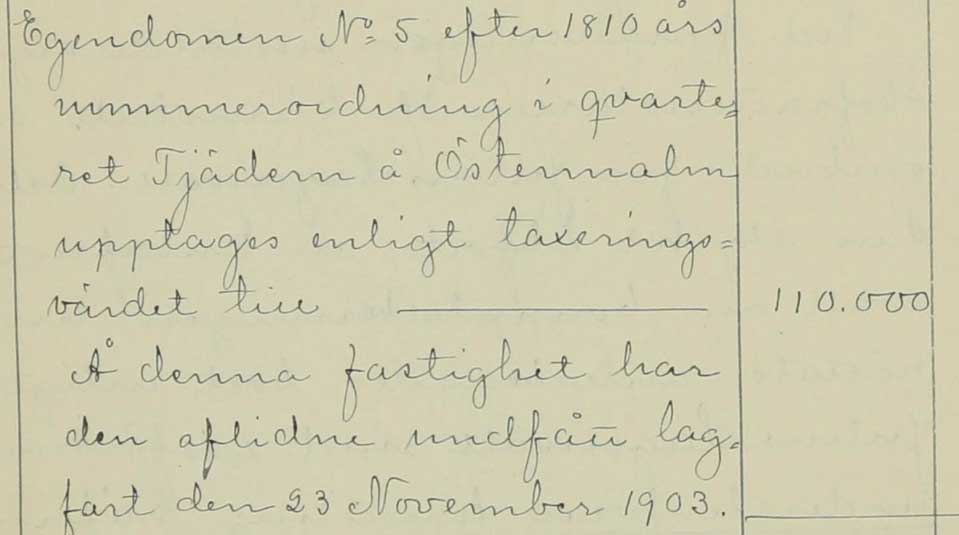 Egendomen No 5 efter 1810 års
nummerordning i qvarte=
ret Tjädern å Östermalm
upptages enligt taxerings=
värdet till ——— 110.000
Å denna fastighet har
den aflidne undfått lag=
fart den 23 November 1903.